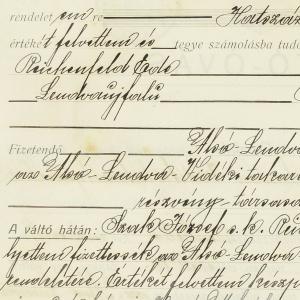 rendelet em re Hatszáz
értékét felvettem és tegye számolásba tud
Reichenfeld Ede
Lendvaujfalu
Fizetendő Alsó-Lendva
az Alsó-Lendva-Vidéki takaré
részvény-társaság
A váltó hátán: Szak József s.k. Rei
lyettem fizettessék az Alsó-Lendva-
rendeletére. Értékét felvettem készp